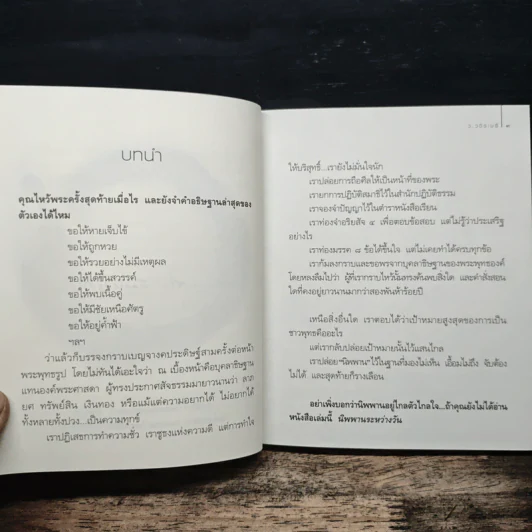 บทนำ
คุณไหว้พระครั้งสุดท้ายเมื่อไร และยังจำคำอธิษฐานล่าสุดของ
ตัวเองได้ไหม
ขอให้หายเจ็บไข้
ขอให้ถูกหวย
ขอให้รวยอย่างไม่มีเหตุผล
ขอให้ได้ขึ้นสวรรค์
ขอให้พบเนื้อคู่
ขอให้มีชัยเหนือศัตรู
ขอให้อยู่ค้ำฟ้า
ฯลฯ
ว่าแล้วก็บรรจงกราบเบญจางคประดิษฐ์สามครั้งต่อหน้า
พระพุทธรูป โดยไม่ทันได้เอะใจว่า ณ เบื้องหน้าคือบุคลาธิษฐาน
แทนองค์พระศาสดา ผู้ทรงประกาศสัจธรรมมายาวนานว่า ลาภ
ยศ ทรัพย์สิน เงินทอง หรือแม้แต่ความอยากได้ ไม่อยากได้
ทั้งหลายทั้งปวง...เป็นความทุกข์
เราปฏิเสธการทำความชั่ว เราชูธงแห่งความดี แต่การทำใจ
ให้บริสุทธิ์...เรายังไม่มั่นใจนัก
เราปล่อยการถือศีลให้เป็นหน้าที่ของพระ
เรายกการปฏิบัติสมาธิไว้ในสำนักปฏิบัติธรรม
เราจองจำปัญญาไว้ในตำราหนังสือเรียน
เราท่องจำอริยสัจ ๔ เพื่อตอบข้อสอบ แต่ไม่รู้ว่าประเสริฐ
อย่างไร
เราท่องมรรค ๘ ข้อได้ขึ้นใจ แต่ไม่เคยทำได้ครบทุกข้อ
เราก้มลงกราบและขอพรจากบุคลาธิษฐานของพระพุทธองค์
โดยหลงลืมไปว่า ผู้ที่เรากราบไหว้นั้นทรงค้นพบสิ่งใด และคำสั่งสอน
ใดที่คงอยู่ยาวนานมากว่าสองพันห้าร้อยปี
เหนือสิ่งอื่นใด เราตอบได้ว่าเป้าหมายสูงสุดของการเป็น
ชาวพุทธคืออะไร
แต่เรากลับปล่อยเป้าหมายนั้นไว้แสนไกล
เราปล่อย "นิพพาน" ไว้ในฐานที่มองไม่เห็น เอื้อมไม่ถึง จับต้อง
ไม่ได้ และสุดท้ายก็รางเลือน
อย่าเพิ่งบอกว่านิพพานอยู่ไกลตัวไกลใจ...ถ้าคุณยังไม่ได้อ่าน
หนังสือเล่มนี้ นิพพานระหว่างวัน